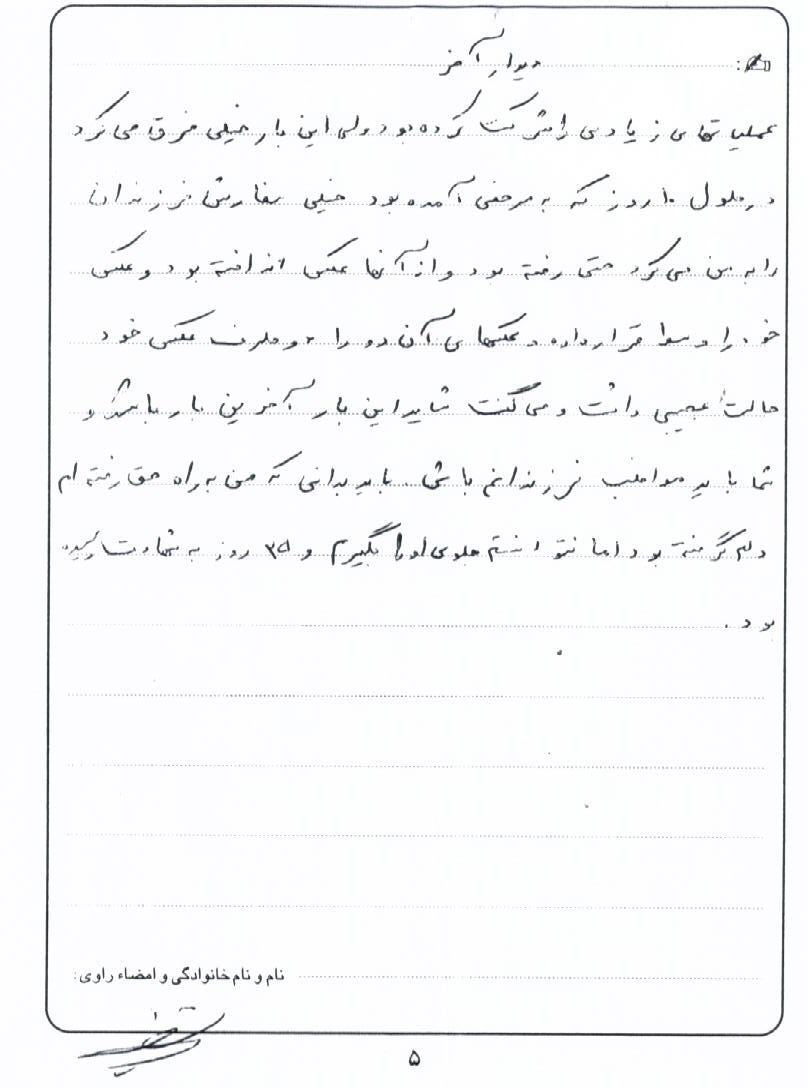 دیوار آخر
عملیاتهای زیادی را شرکت کرده بود ولی این بار خیلی فرق می کرد
در طول ۱۰ روز که به مرخصی آمده بود خیلی سفارش فرزندان
را به من می کرد حتی رفته بود و از آنها عکس انداخته بود و عکس
خود را وسط قرار داده و عکسهای آن دو را ۲ طرف عکس خود
حالت عجیبی داشت و می گفت شاید این بار آخرین بار باشد و
شما باید مواظب فرزندانم باشی. باید بدانی که من به راه حق رفته ام
دلم گرفته بود اما نتوانستم جلوی او را بگیرم و ۳۵ روز به شهادت رسیده
بود.
نام و نام خانوادگی و امضاء راوی:
۵